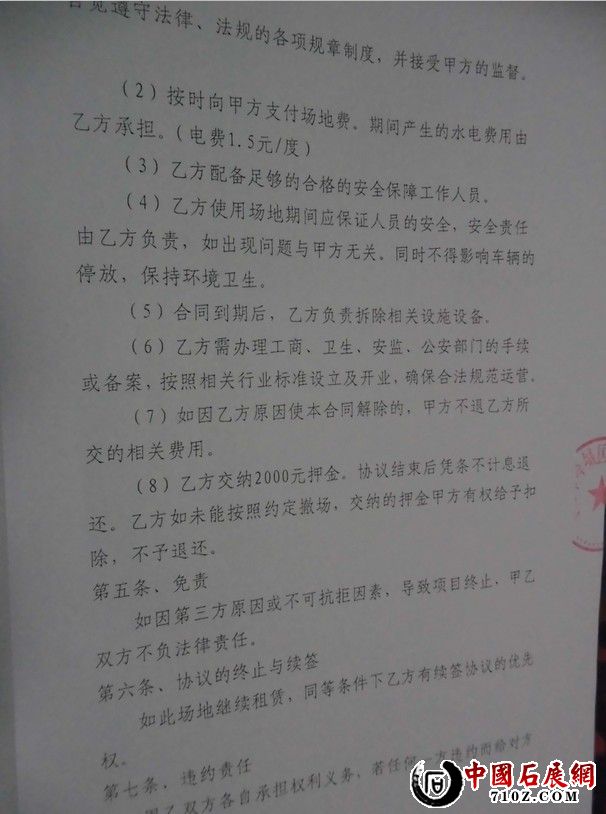 自觉遵守法律、法规的各项规章制度，并接受甲方的监督。
（2）按时向甲方支付场地费。期间产生的水电费用由
乙方承担。（电费1.5元/度）
（3）乙方配备足够的合格的安全保障工作人员。
（4）乙方使用场地期间应保证人员的安全，安全责任
由乙方负责，如出现问题与甲方无关。同时不得影响车辆的
停放，保持环境卫生。
（5）合同到期后，乙方负责拆除相关设施设备。
（6）乙方需办理工商、卫生、安监、公安部门的手续
或备案，按照相关行业标准设立及开业，确保合法规范运营。
（7）如因乙方原因使本合同解除的，甲方不退乙方所
交的相关费用。
（8）乙方交纳2000元押金。协议结束后凭条不计息退
还。乙方如未能按照约定撤场，交纳的押金甲方有权给予扣
除，不予退还。
第五条、免责
如因第三方原因或不可抗拒因素，导致项目终止，甲乙
双方不负法律责任。
第六条、协议的终止与续签
如此场地继续租赁，同等条件下乙方有续签协议的优先
权。
第七条、违约责任
乙双方各自承担权利义务，若任何一方违约而给对方
中國石展網
710Z.COM